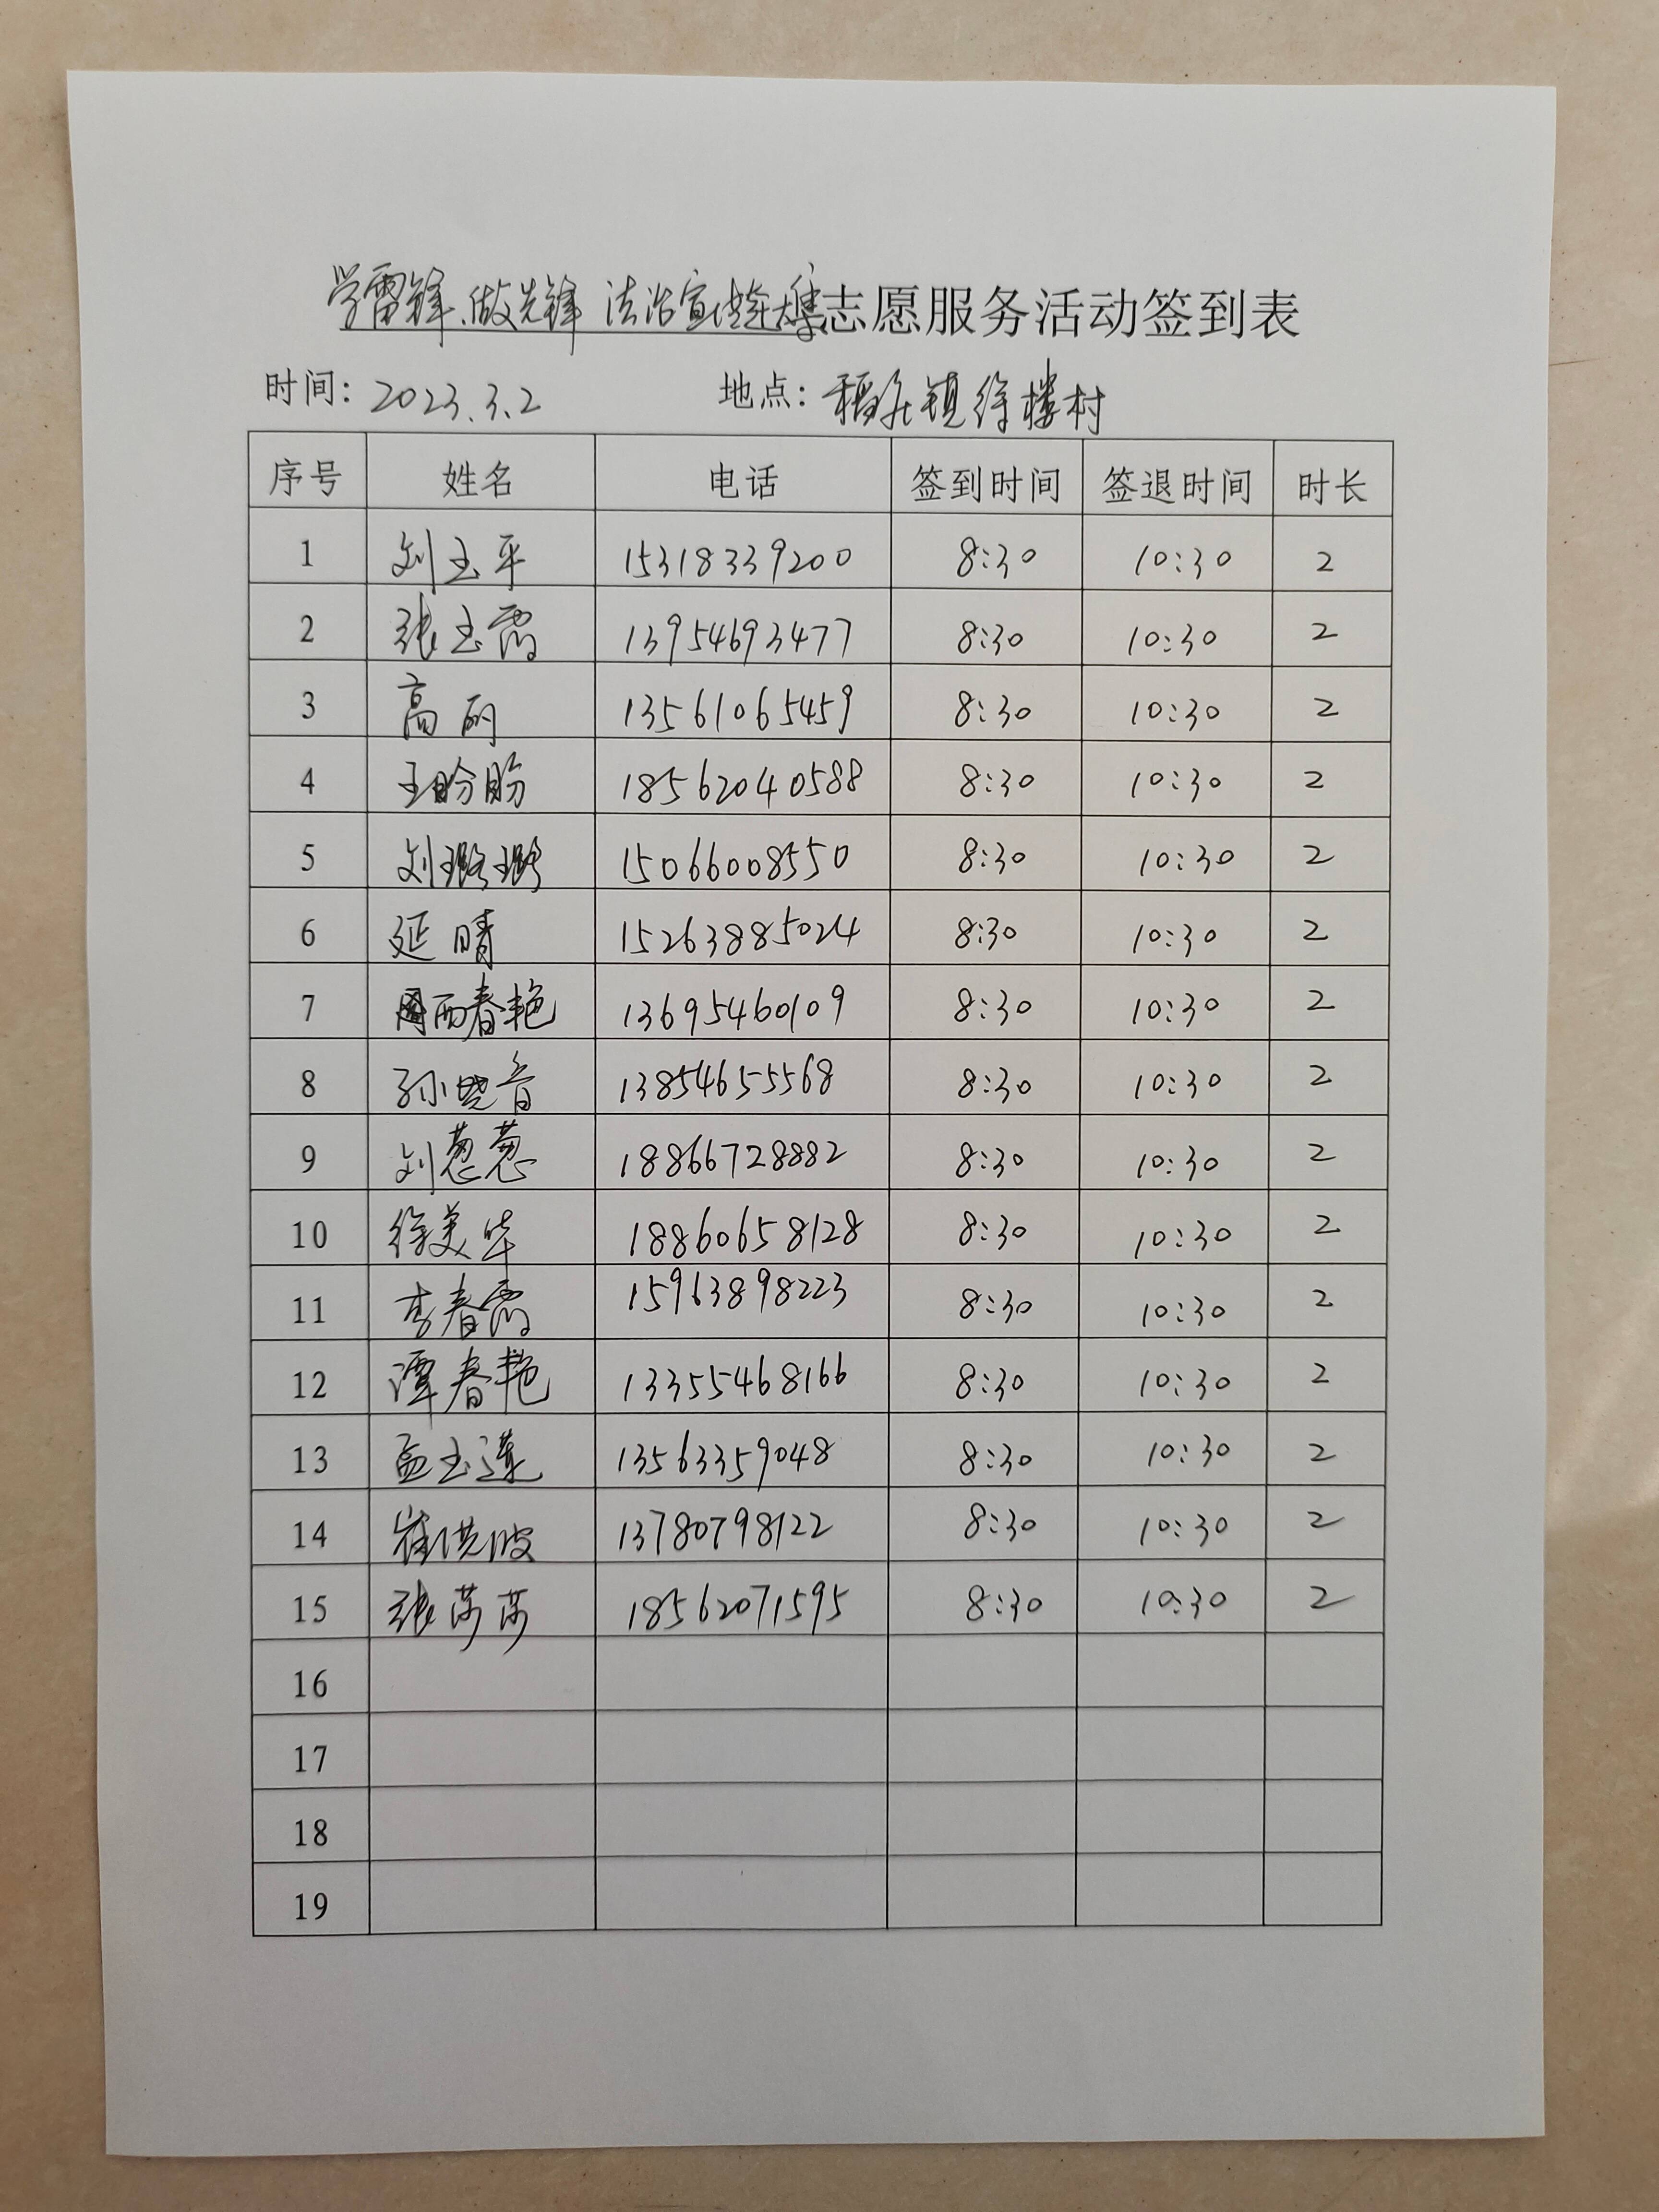 学雷锋、做先锋 法治宣传赶大集志愿服务活动签到表
时间：2023.3.2 地点：稻庄镇徐楼村
序号 姓名 电话 签到时间 签退时间 时长
1 刘玉平 15318339200 8:30 10:30 2
2 张玉霞 13954693477 8:30 10:30 2
3 高丽 13561065459 8:30 10:30 2
4 王盼盼 18562040588 8:30 10:30 2
5 刘璐璐 15066008550 8:30 10:30 2
6 延晴 15263885024 8:30 10:30 2
7 西春艳 13695460109 8:30 10:30 2
8 孙晓音 13854655568 8:30 10:30 2
9 刘葱葱 18866728882 8:30 10:30 2
10 徐美华 18860658128 8:30 10:30 2
11 李春霞 15963898223 8:30 10:30 2
12 谭春艳 13355468166 8:30 10:30 2
13 孟玉莲 13563359048 8:30 10:30 2
14 崔洪波 13780798122 8:30 10:30 2
15 张莎莎 18562071595 8:30 10:30 2
16
17
18
19